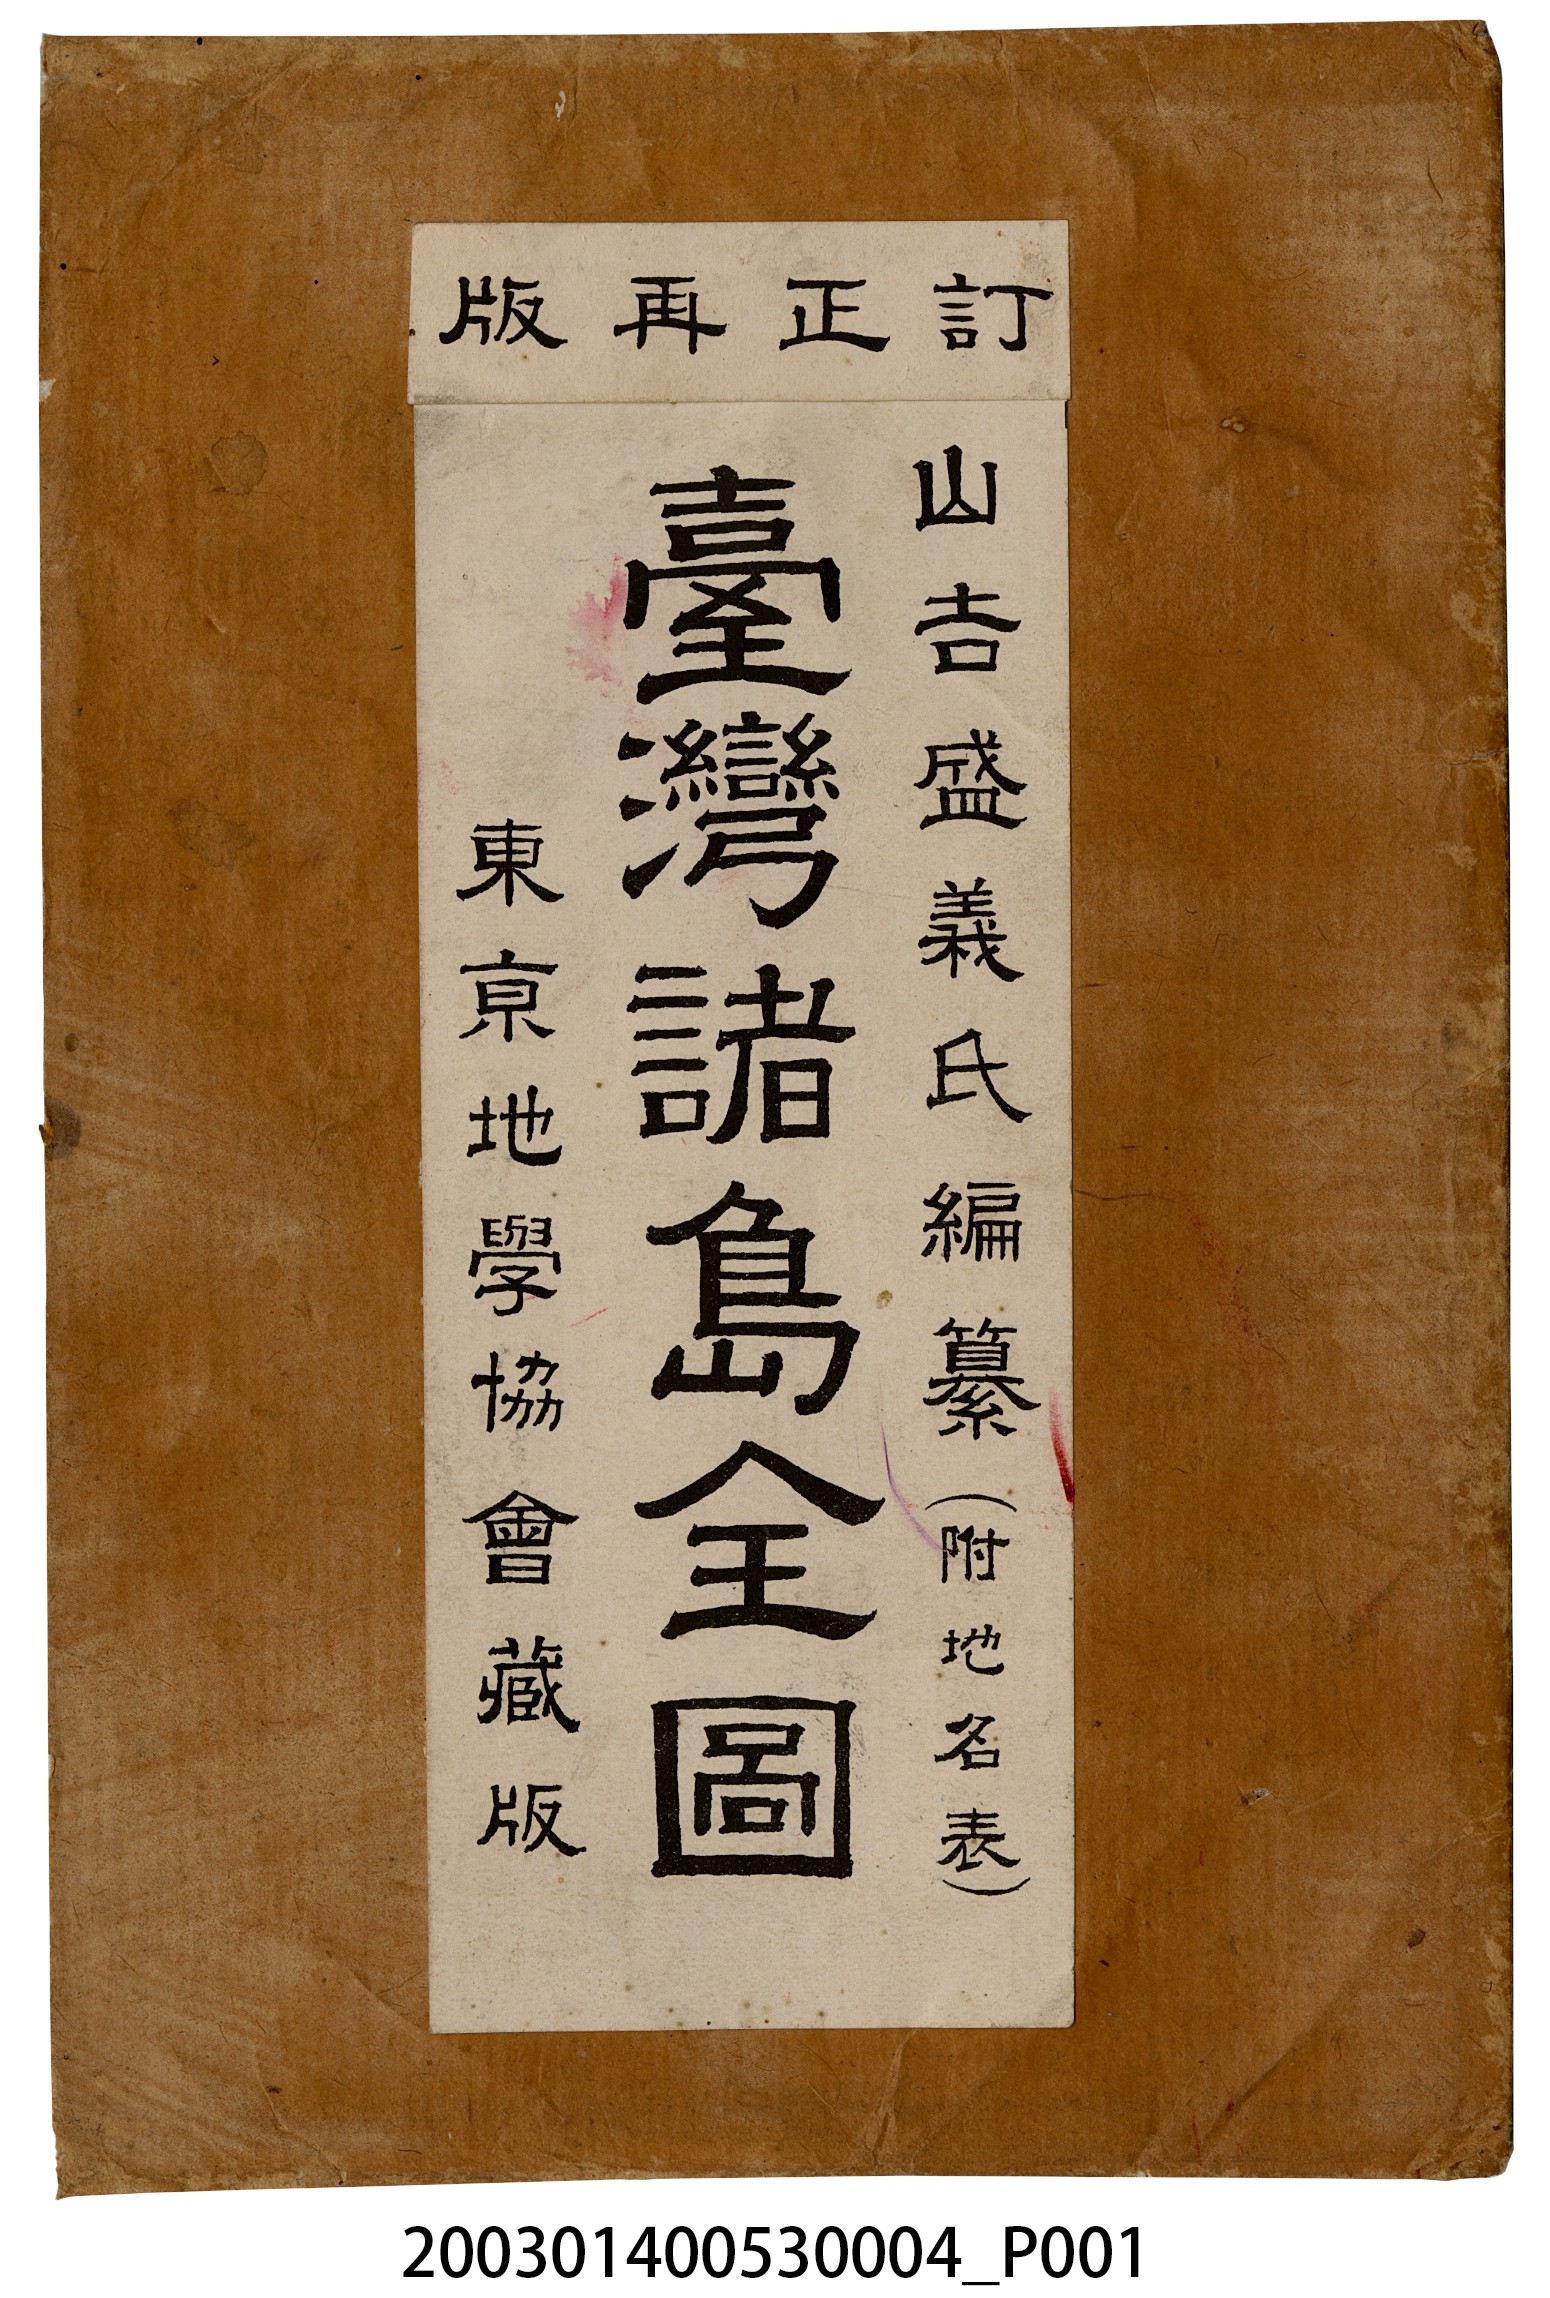 訂正再版
山吉盛義氏編纂（附地名表）
臺灣諸島全圖
東京地學協會藏版
200301400530004_P001